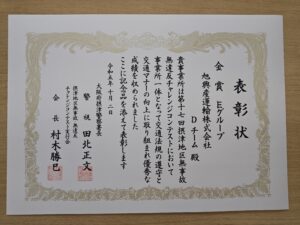 表彰状
金賞 Eグループ
旭興産運輸株式会社
Dチーム 殿
貴事業所は第十七回摂津地区無事故
無違反チャレンジコンテストにおいて
事業所一体となって交通法規の遵守と
交通マナーの向上に取り組まれ優秀な
成績を収められました
ここに記念品を添えて表彰します
令和五年十月二日
大阪府摂津警察署長
警視 田北正文
摂津地区無事故・無違反
チャレンジコンテスト実行委員会
会長 村木勝巳